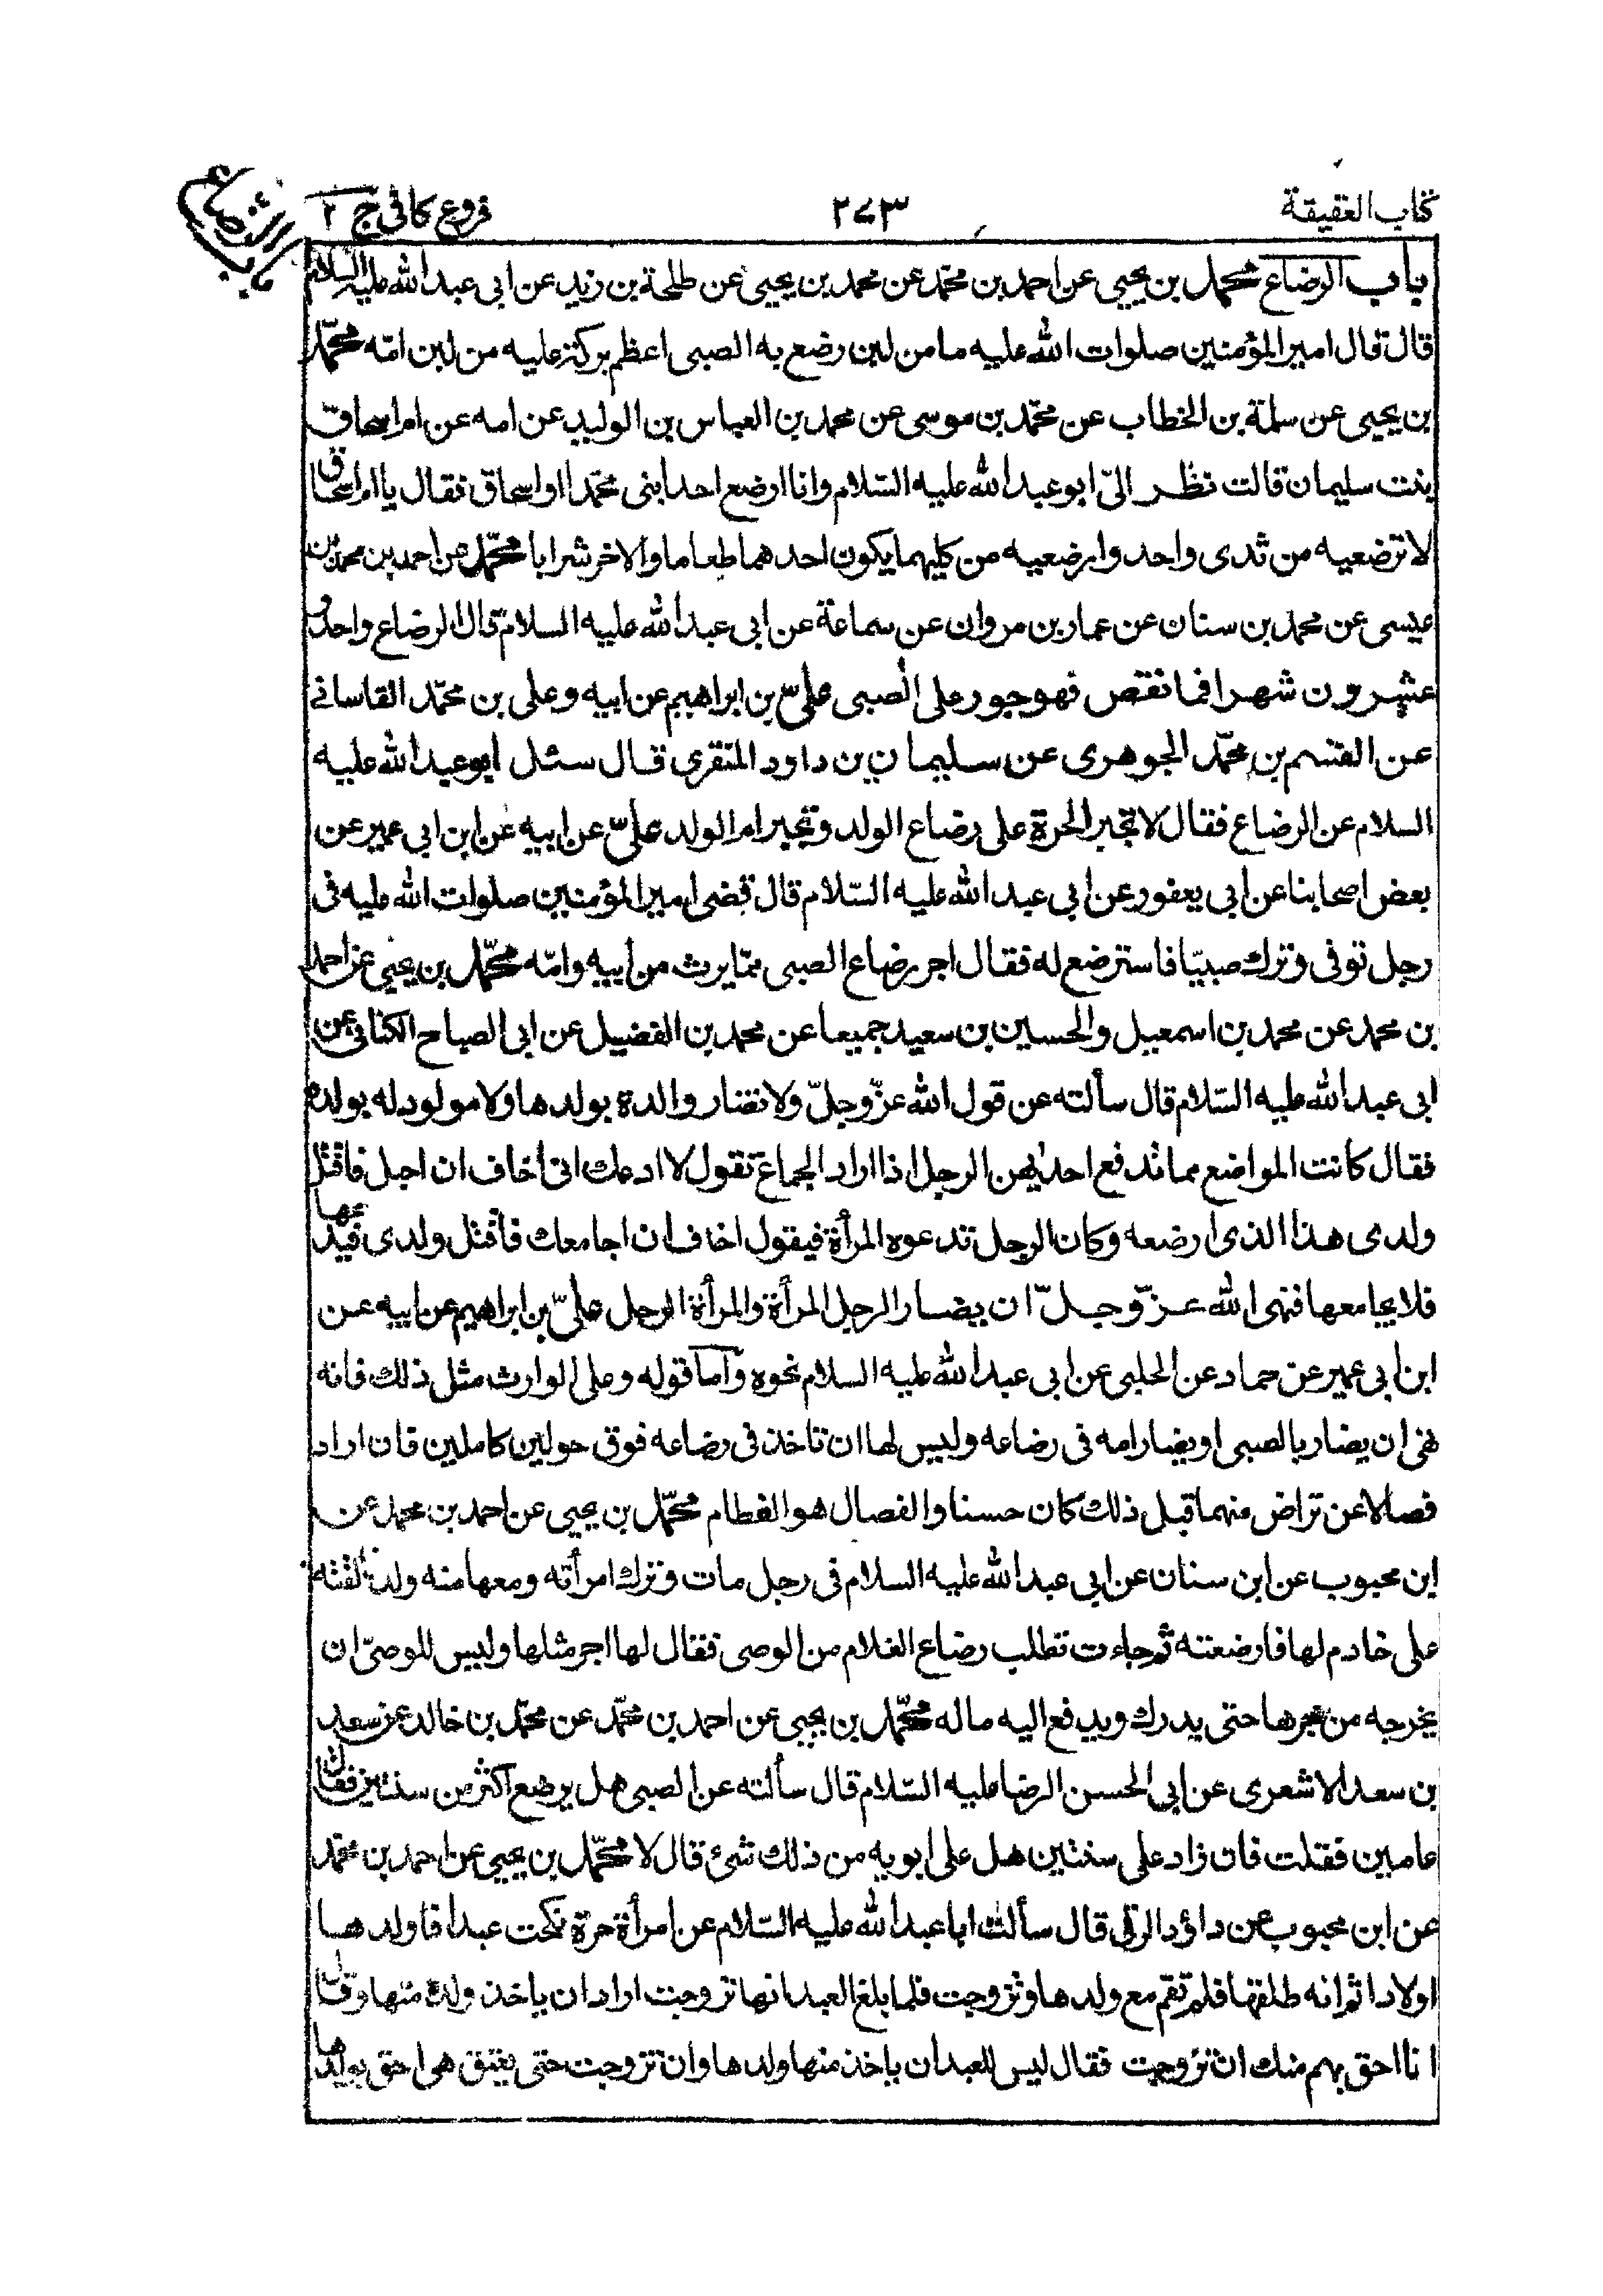 كتاب العقيقة
٢٧٣
فروع كافى ج ٢
باب الرضاع
باب الرضاع محمد بن يحيى عن احمد بن محمّد عن محمد بن يحيى عن طلحة بن زيد عن ابى عبد الله عليه السلام
قال قال امير المؤمنين صلوات الله عليه ما من لبن رضع به الصبى اعظم بركة عليه من لبن امّه محمّد
بن يحيى عن سلمة بن الخطاب عن محمّد بن موسى عن محمد بن العباس بن الوليد عن امه عن ام اسحاق
بنت سليمان قالت نظر الىّ ابو عبد الله عليه السّلام وانا ارضع احد ابنى محمّدا او اسحاق فقال يا ام اسحاق
لا ترضعيه من ثدى واحد وارضعيه من كليهما يكون احدهما طعاما والاخر شرابا محمّد عن احمد بن محمد بن
عيسى عن محمد بن سنان عن عمار بن مروان عن سماعة عن ابى عبد الله عليه السلام قال الرضاع واحد و
عشرون شهرا فما نقص فهو جور على الصبى علىّ بن ابراهيم عن ابيه وعلى بن محمّد القاسانى
عن القسم بن محمّد الجوهرى عن سليمان بن داود المنقرى قال سئل ابو عبد الله عليه
السلام عن الرضاع فقال لا تجبر الحرة على رضاع الولد وتجبر ام الولد علىّ عن ابيه عن ابن ابى عمير عن
بعض اصحابنا عن ابى يعفور عن ابى عبد الله عليه السّلام قال قضى امير المؤمنين صلوات الله عليه فى
رجل توفى وترك صبيّا فاسترضع له فقال اجر رضاع الصبى ممّا يرث من ابيه وامّه محمّد بن يحيى عن احمد
بن محمد عن محمد بن اسمعيل والحسين بن سعيد جميعا عن محمد بن الفضيل عن ابى الصباح الكنانى عن
ابى عبد الله عليه السّلام قال سألته عن قول الله عزّ وجلّ ولا تضار والدة بولدها ولا مولود له بولده
فقال كانت المواضع مما تدفع احديهن الرجل اذا اراد الجماع تقول لا ادعك انى اخاف ان احبل فاقتل
ولدى هذا الذى ارضعه وكان الرجل تدعوه المرأة فيقول اخاف ان اجامعك فأقتل ولدى فيدعها
فلا يجامعها فنهى الله عزّ وجلّ ان يضار الرجل المرأة والمرأة الرجل علىّ بن ابراهيم عن ابيه عن
ابن ابى عمير عن حماد عن الحلبى عن ابى عبد الله عليه السلام نحوه وأما قوله وعلى الوارث مثل ذلك فانه
نهى ان يضار بالصبى او يضار امه فى رضاعه وليس لها ان تاخذ فى رضاعه فوق حولين كاملين فان اراد
فصالا عن تراض منهما قبل ذلك كان حسنا والفصال هو الفطام محمّد بن يحيى عن احمد بن محمد عن
ابن محبوب عن ابن سنان عن ابى عبد الله عليه السلام فى رجل مات وترك امرأته ومعها منه ولد فالقته
على خادم لها فارضعته ثم جاءت تطلب رضاع الغلام من الوصى فقال لها اجر مثلها وليس للوصىّ ان
يخرجه من حجرها حتى يدرك ويدفع اليه ماله محمّد بن يحيى عن احمد بن محمّد عن محمّد بن خالد عن سعد
بن سعد الاشعرى عن ابى الحسن الرضا عليه السّلام قال سألته عن الصبى هل يرضع اكثر من سنتين فقال
عامين فقلت فان زاد على سنتين هل على ابويه من ذلك شئ قال لا محمّد بن يحيى عن احمد بن محمّد
عن ابن محبوب عن داؤد الرقى قال سألت ابا عبد الله عليه السّلام عن امرأة حرة نكحت عبدا فاولدها
اولادا ثم انه طلقها فلم تقم مع ولدها وتزوجت فلما بلغ العبد انها تزوجت اراد ان ياخذ ولده منها وقال
انا احق بهم منك ان تزوجت فقال ليس للعبد ان ياخذ منها ولدها وان تزوجت حتى يعتق هى احق بولدها